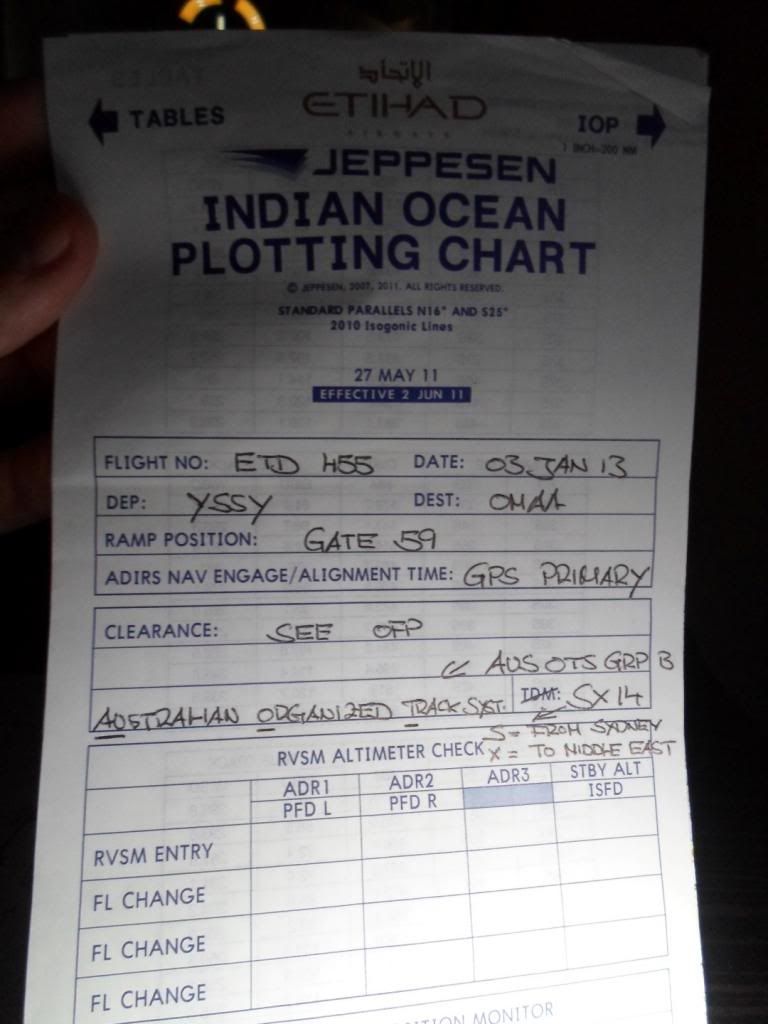 الإتحاد
ETIHAD
AIRWAYS
TABLES
IOP
1 INCH=200 NM
JEPPESEN
INDIAN OCEAN
PLOTTING CHART
© JEPPESEN, 2007, 2011. ALL RIGHTS RESERVED.
STANDARD PARALLELS N16° AND S25°
2010 Isogonic Lines
27 MAY 11
EFFECTIVE 2 JUN 11
FLIGHT NO: ETD 455 DATE: 03 JAN 13
DEP: YSSY DEST: OMAA
RAMP POSITION: GATE 59
ADIRS NAV ENGAGE/ALIGNMENT TIME: GPS PRIMARY
CLEARANCE: SEE OFP
AUSOTS GRP B
AUSTRALIAN ORGANIZED TRACK SYST. IDM: SX14
S = FROM SYDNEY
RVSM ALTIMETER CHECK X = TO MIDDLE EAST
ADR1 ADR2 ADR3 STBY ALT
PFD L PFD R ISFD
RVSM ENTRY
FL CHANGE
FL CHANGE
FL CHANGE
MONITOR